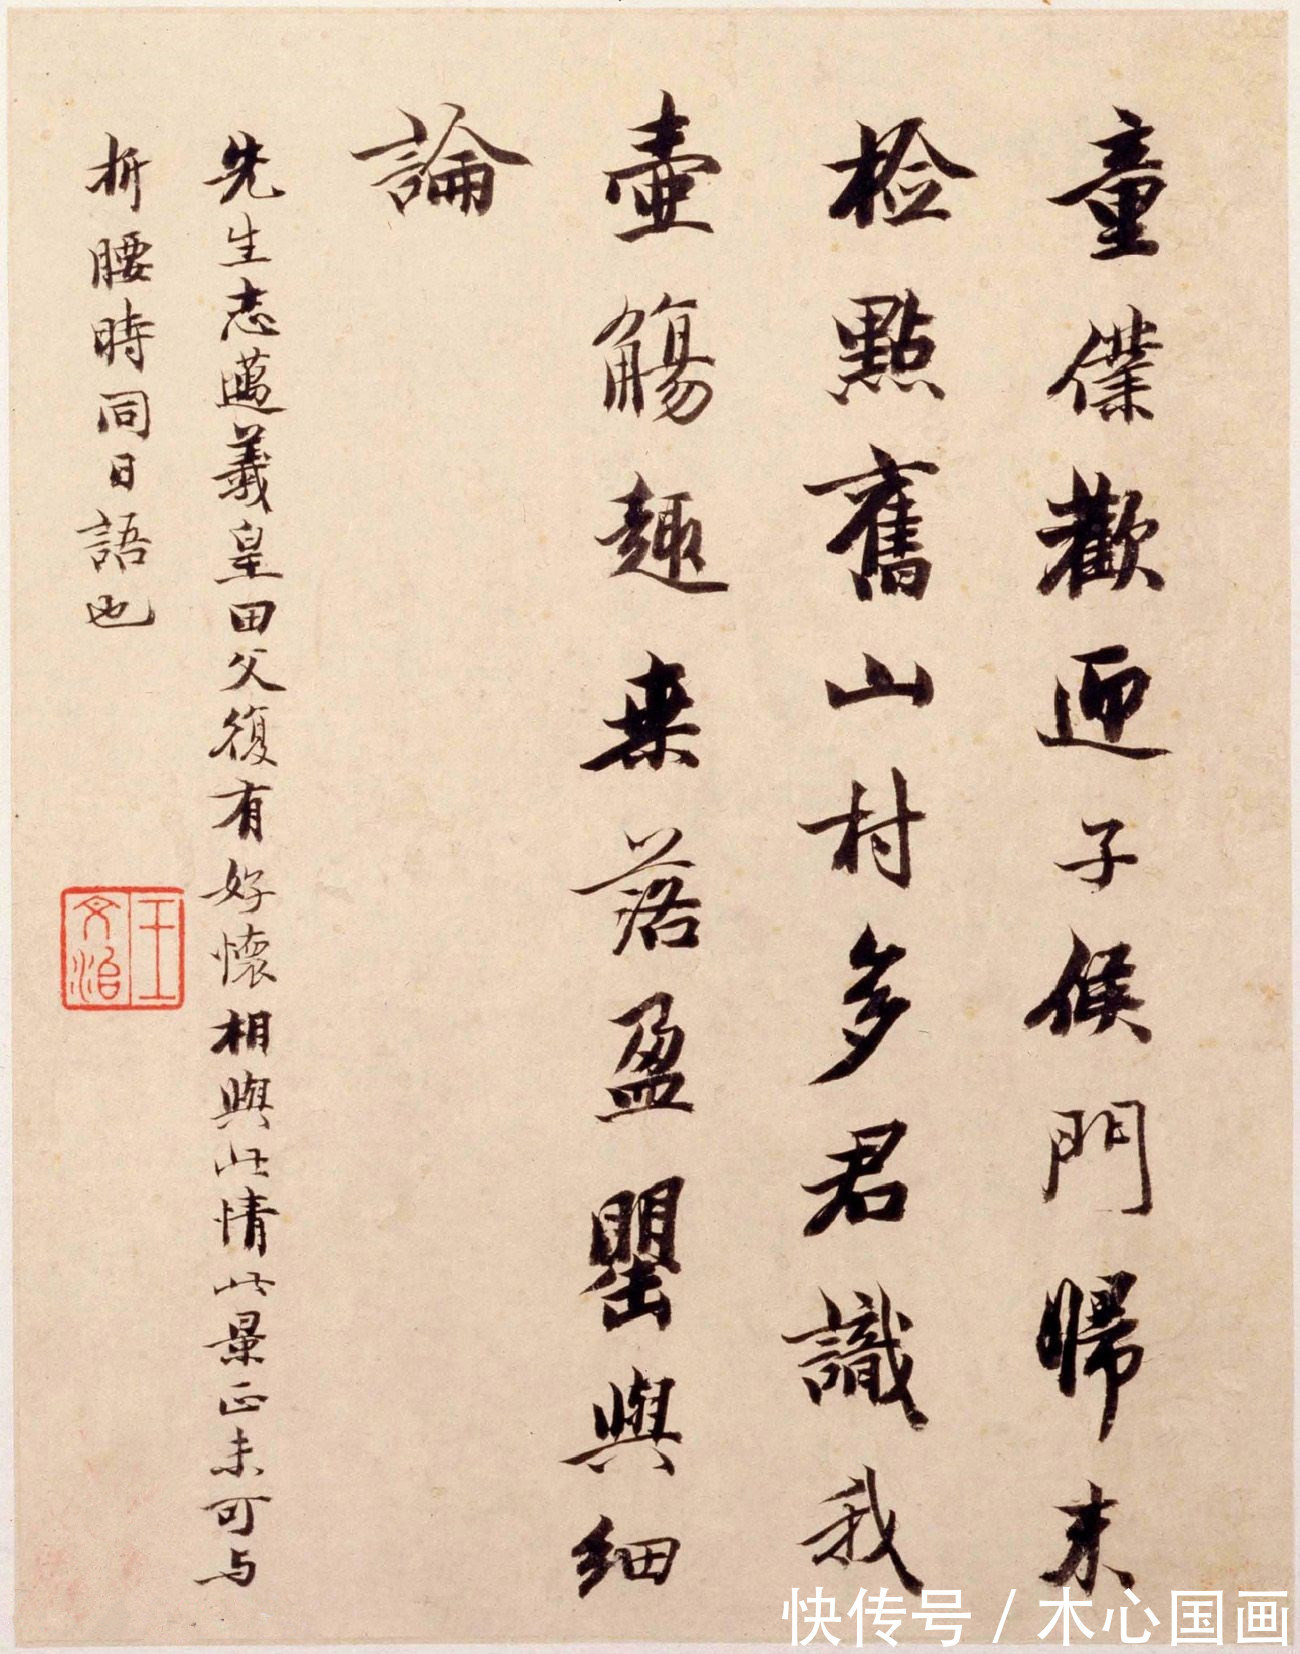 童僕歡迎子候門歸來
檢點舊山村多君識我
壺觴趣桒落盈罌與細
論
先生志邁羲皇田父復有好懷相與此情此景正未可与
折腰時同日語也
王文治
快传号 / 木心国画